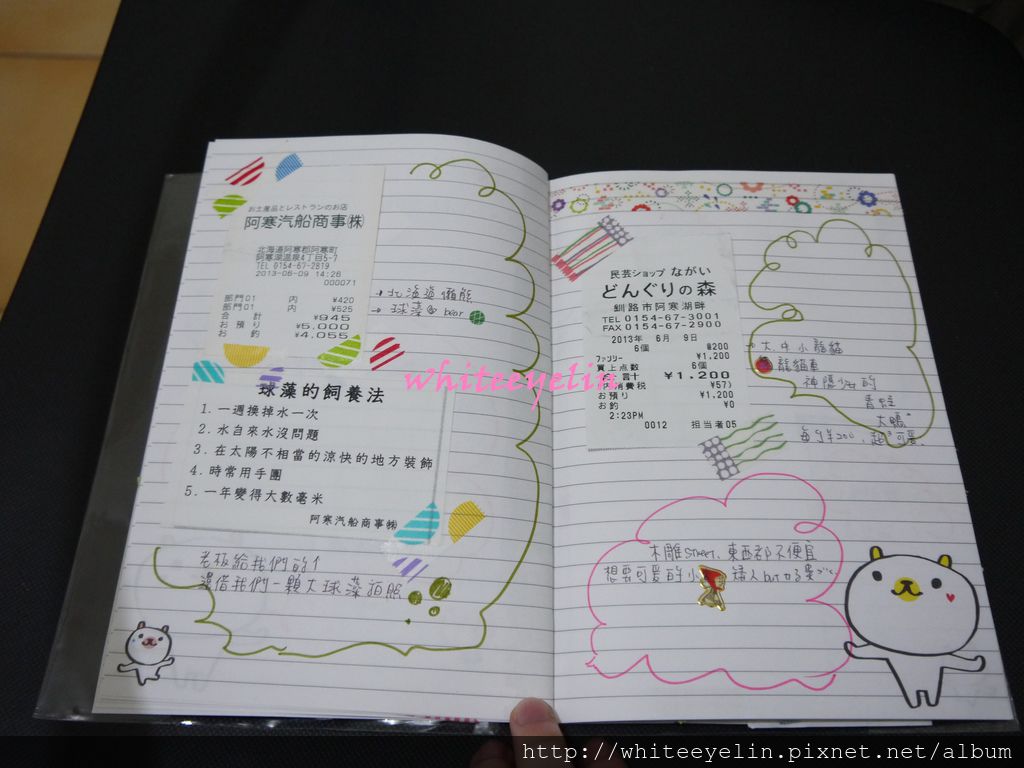 お土産品とレストランのお店
阿寒汽船商事㈱
北海道阿寒郡阿寒町
阿寒湖温泉4丁目5-7
TEL 0154-67-2819
2013-06-09 14:26
000071
部門01 内 ¥420
部門01 内 ¥525
合 計 ¥945
お預り ¥5,000
お 釣 ¥4,055
→北海道懶熊
→球藻 bear
球藻的飼養法
1. 一週換掉水一次
2. 水自來水沒問題
3. 在太陽不相當的涼快的地方裝飾
4. 時常用手團
5. 一年變得大數毫米
阿寒汽船商事㈱
老板給我們的
還借我們一顆大球藻拍照
民芸ショップ ながい
どんぐりの森
釧路市阿寒湖畔
TEL 0154-67-3001
FAX 0154-67-2900
2013年 6月 9日
6個 @200
ファンシー ¥1,200
買上点数 6個
合計 ¥1,200
消費税 ¥57)
お預り ¥1,200
お釣 ¥0
2:23PM
0012 担当者05
大.中.小龍貓
龍貓車
神隱少女的
青蛙
大鴨
每個¥200,超可愛
木雕street、東西都不便宜
想要可愛的小 婦人but
whiteeyelin
http://whiteeyelin.pixnet.net/album